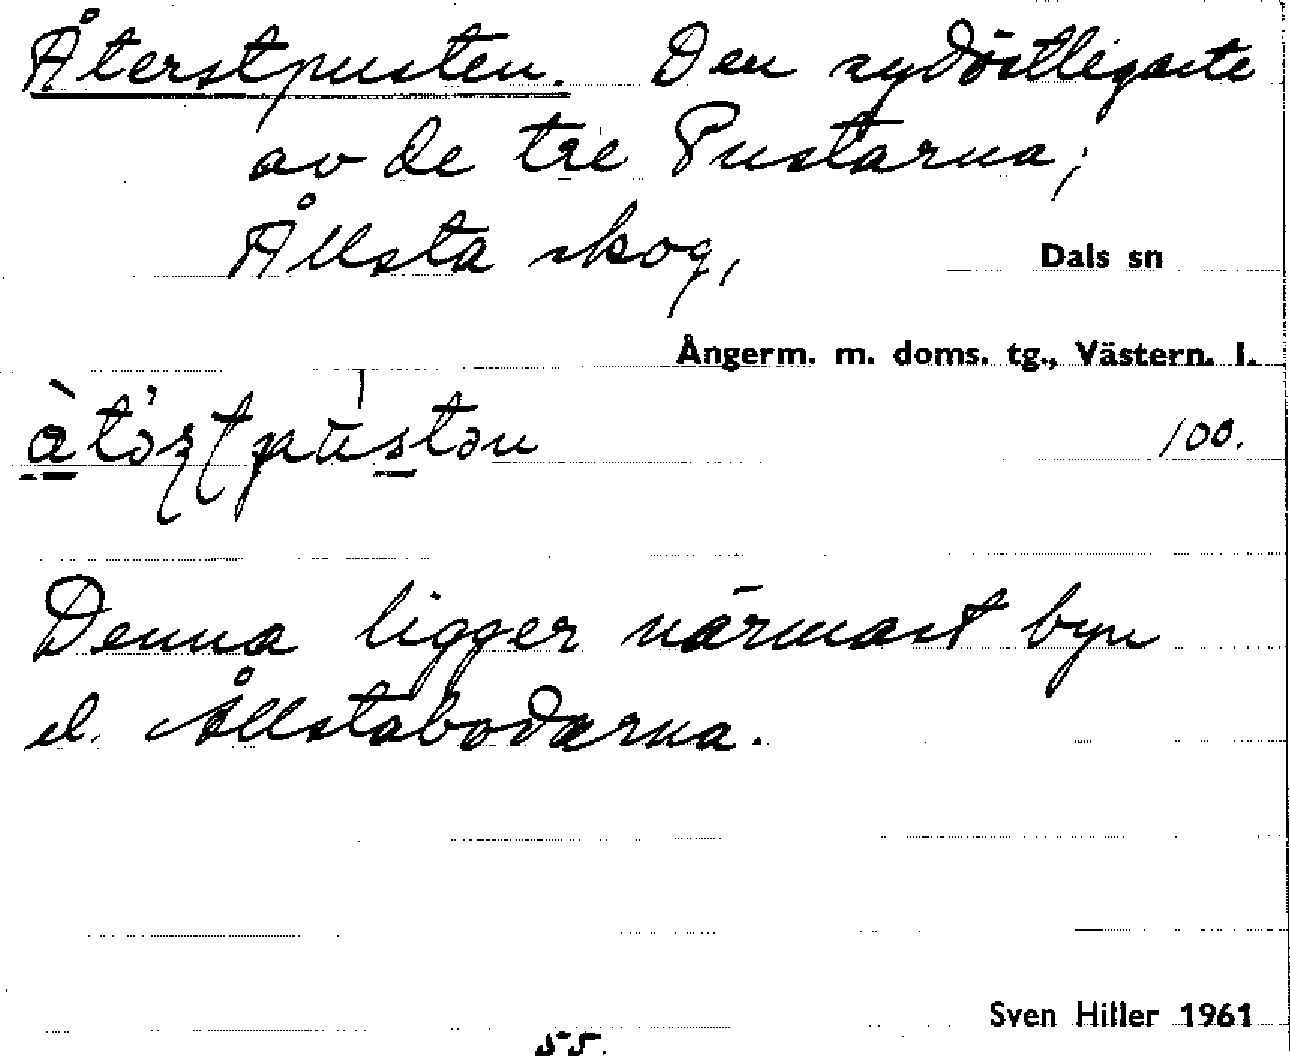 Återstpusten. Den sydöstligaste
av de tre Pustarna;
Ållsta skog, Dals sn
Ångerm. m. doms. tg., Västern. l.
100.
Denna ligger närmast byn
el. Ållstabodarna.
Sven Hiller 1961
55.